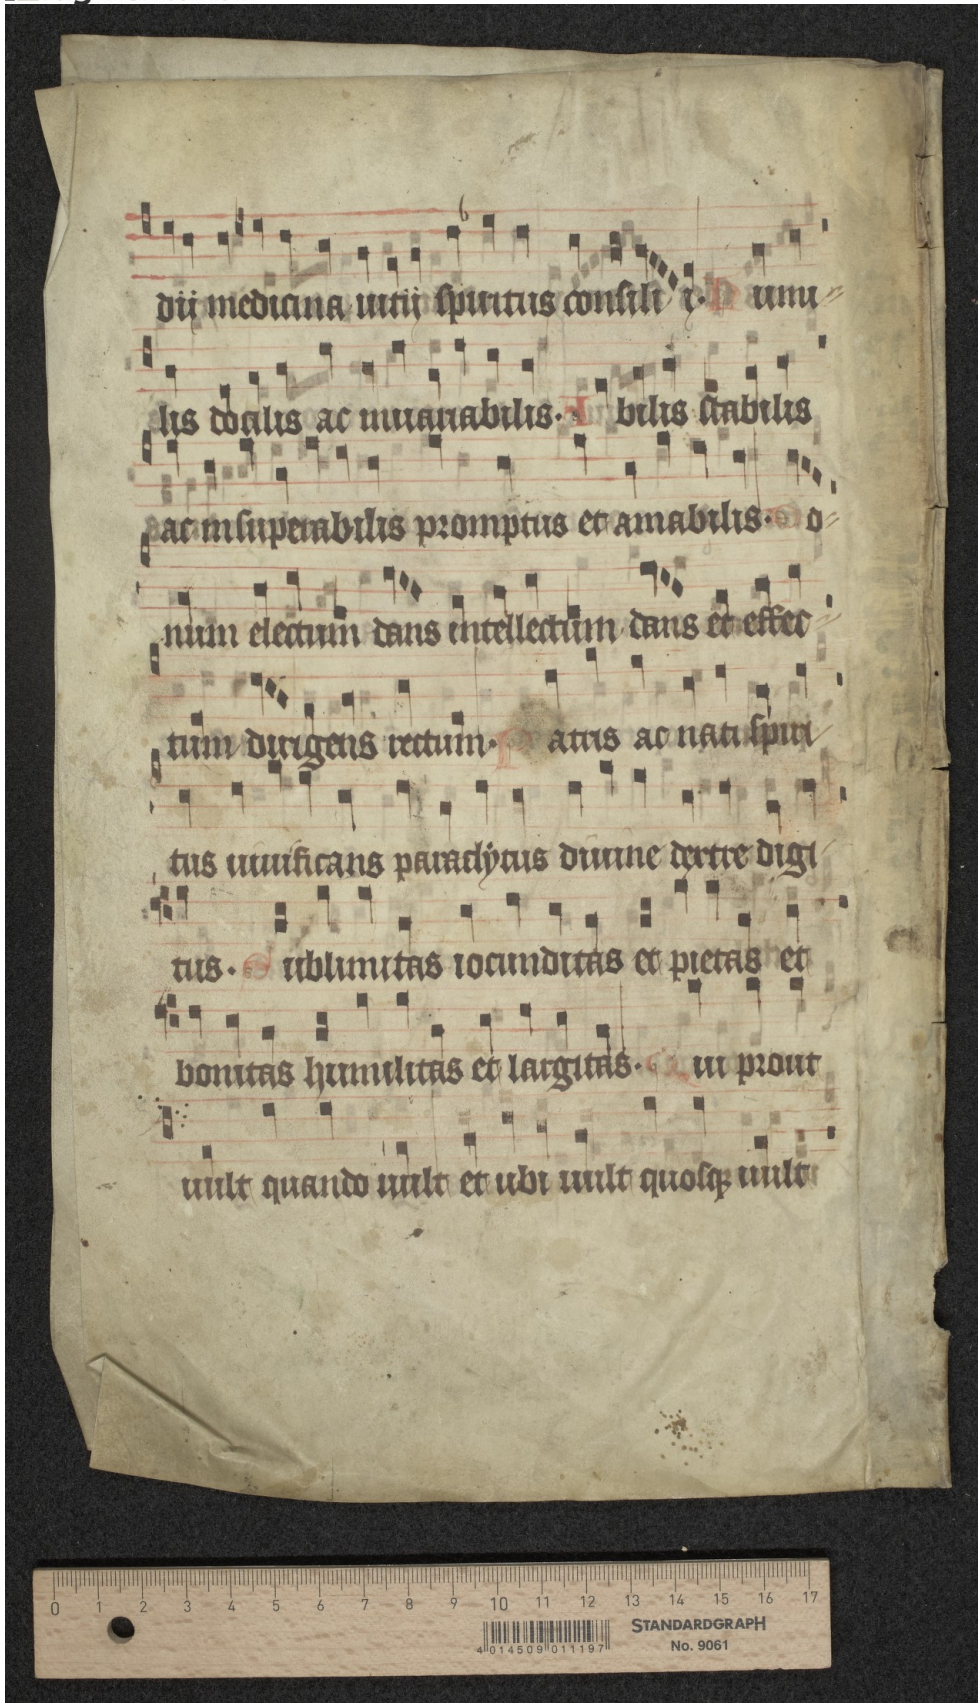 dii medicina uitij spiritus consili i. H umi
lis docilis ac inuariabilis. N bilis stabilis
ac insuperabilis promptus et amabilis. D o
num electum dans intellectum dans et effec
tum dirigens rectum. P atris ac nati spiri
tus uiuificans paraclytus diuine dextre digi
tus. S ublimitas iocunditas et pietas et
bonitas humilitas et largitas. Q ui prout
uult quando uult et ubi uult quosq; uult
0 1 2 3 4 5 6 7 8 9 10 11 12 13 14 15 16 17
STANDARDGRAPH
No. 9061
4 014509 011197